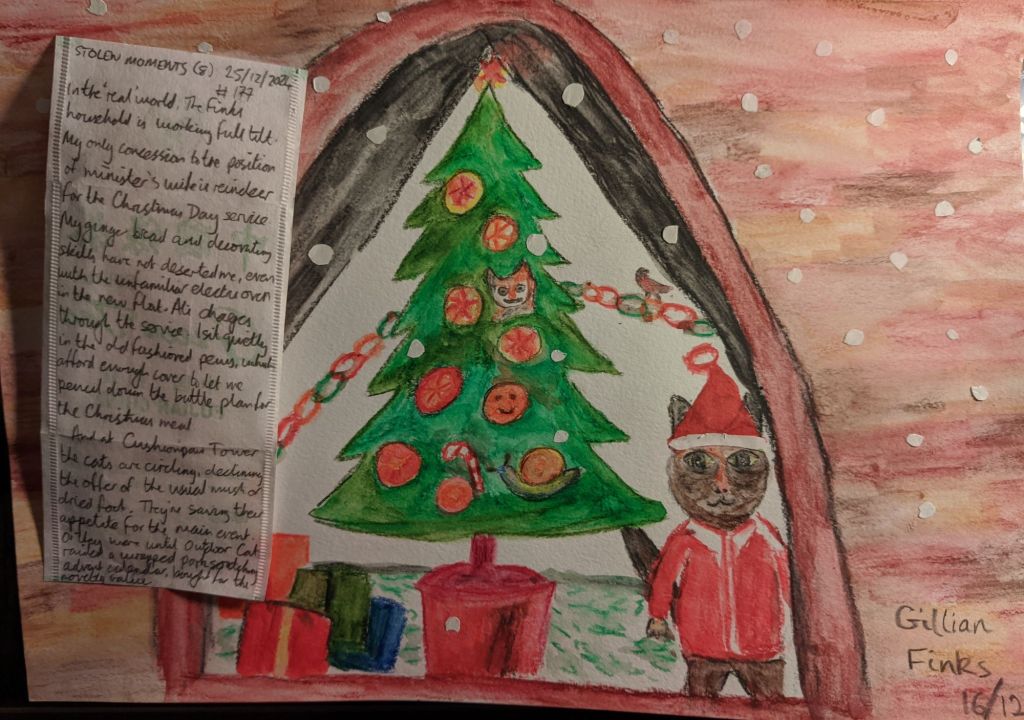 STOLEN MOMENTS (8) 25/12/2024
# 177
In the 'real' world, The Finks
household is working full tilt.
My only concession to the position
of minister's wife is reindeer
for the Christmas Day service
My ginger bread and decorating
skills have not deserted me, even
with the unfamiliar electric oven
in the new flat. Ali charges
through the service. I sit quietly
in the old fashioned pews, which
afford enough cover to let me
pencil down the battle plan for
the Christmas meal
And at Cushionpaw Tower
the cats are circling, declining
the offer of the usual mush or
dried food. They're saving their
appetite for the main event.
Or they were until Outdoor Cat
raided a wrapped pork scratching
advent calendar, bought for the
novelty value
Gillian
Finks
16/12